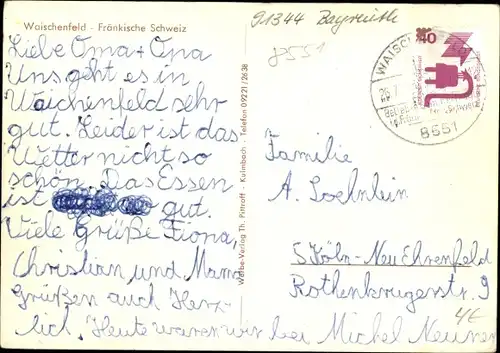 Waischenfeld - Fränkische Schweiz
Liebe Oma + Opa
Uns geht es in
Waichenfeld sehr
gut. Leider ist das
Wetter nicht so
schön. Das Essen
ist gut.
Viele Grüße Fiona,
Christian und Mama
Grüßen auch Herz-
lich. Heute waren wir bei Michel Neuner
Werbe-Verlag Th. Pittroff - Kulmbach - Telefon 09221/2638
91344 Bayreuth
8551
40
WAISCH
26.7.
8551
Familie
A. Loehnlein
5 Köln-Neu Ehrenfeld
Rothenkrugerstr. 9
4€